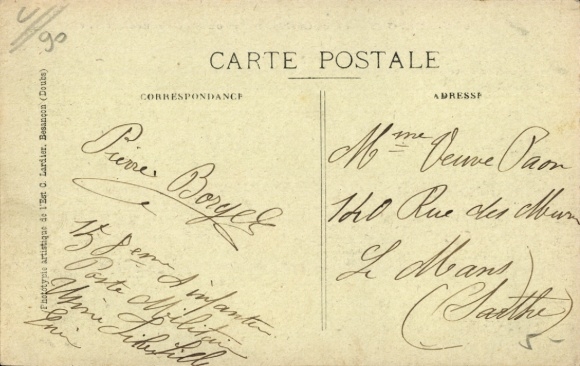 4/90
CARTE POSTALE
CORRESPONDANCE
ADRESSE
Phototypie artistique de l'Est C. Lardier, Besançon (Doubs)
Pierre
158 eme d'infanterie
Poste Militaire
Mme Veuve Paon
140 Rue des
Le Mans
(Sarthe)